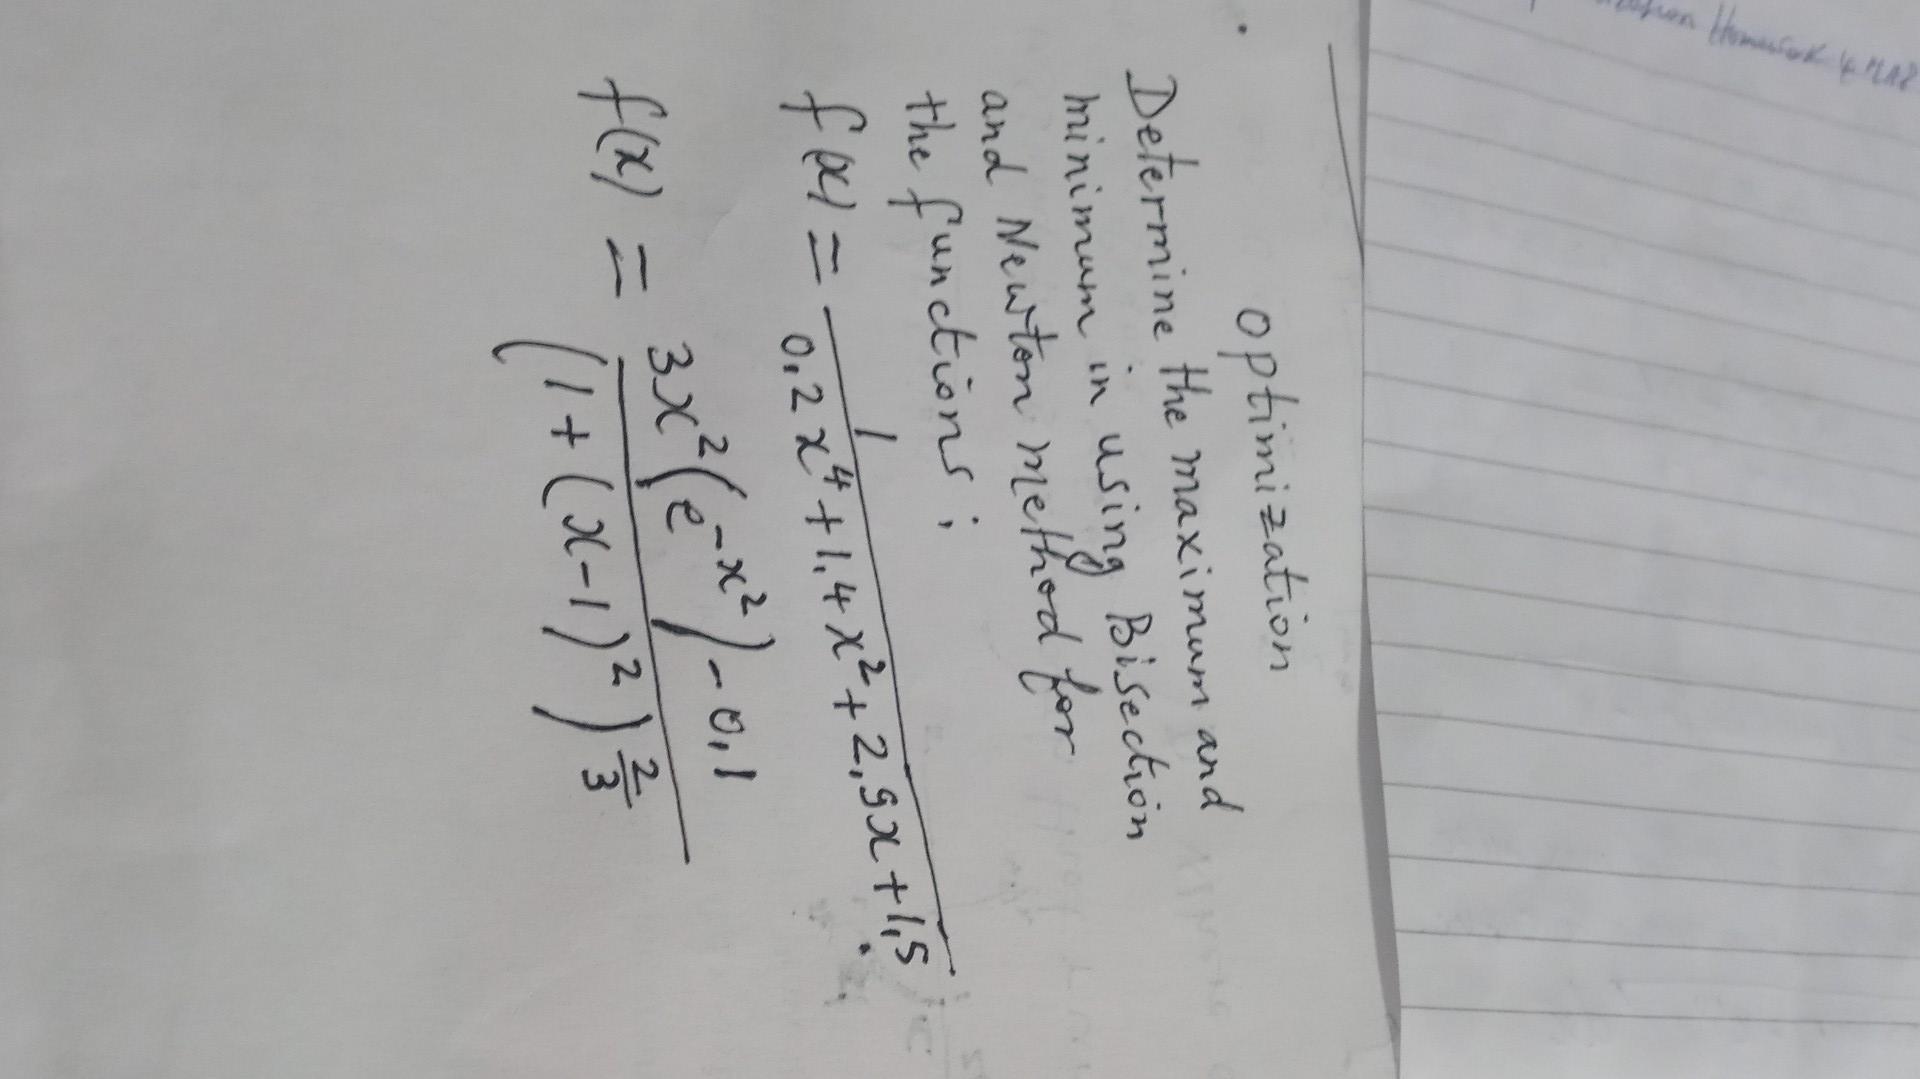 Optimization
Determine the maximum and
minimum in using Bisection
and Newton method for
the functions;
f(x) = 1 / 0,2x⁴ + 1,4x² + 2,9x + 1,5
f(x) = 3x²(e^-x²) - 0,1 / (1 + (x-1)²)^2/3
Homework 4